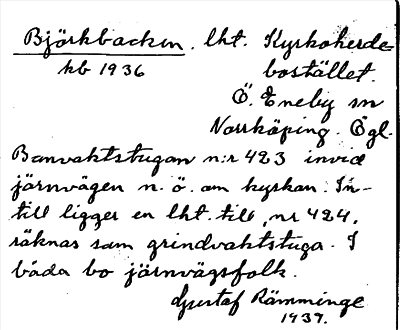 Björkbacken. lht. Kyrkoherde-
kb 1936 bostället.
Ö. Eneby sn
Norrköping. Ögl.
Banvaktstugan n:r 423 invid
järnvägen n. ö. om kyrkan. In-
till ligger en lht. till, nr 424,
räknas som grindvaktstuga. I
båda bo järnvägsfolk.
Gustaf Rämminge
1937.